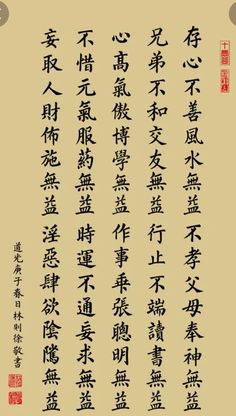 存心不善風水無益 不孝父母奉神無益
兄弟不和交友無益 行止不端讀書無益
心髙氣傲博學無益 作事乖張聰明無益
不惜元氣服藥無益 時運不通妄求無益
妄取人財佈施無益 淫惡肆欲陰騭無益
道光庚子春日林則徐敬書